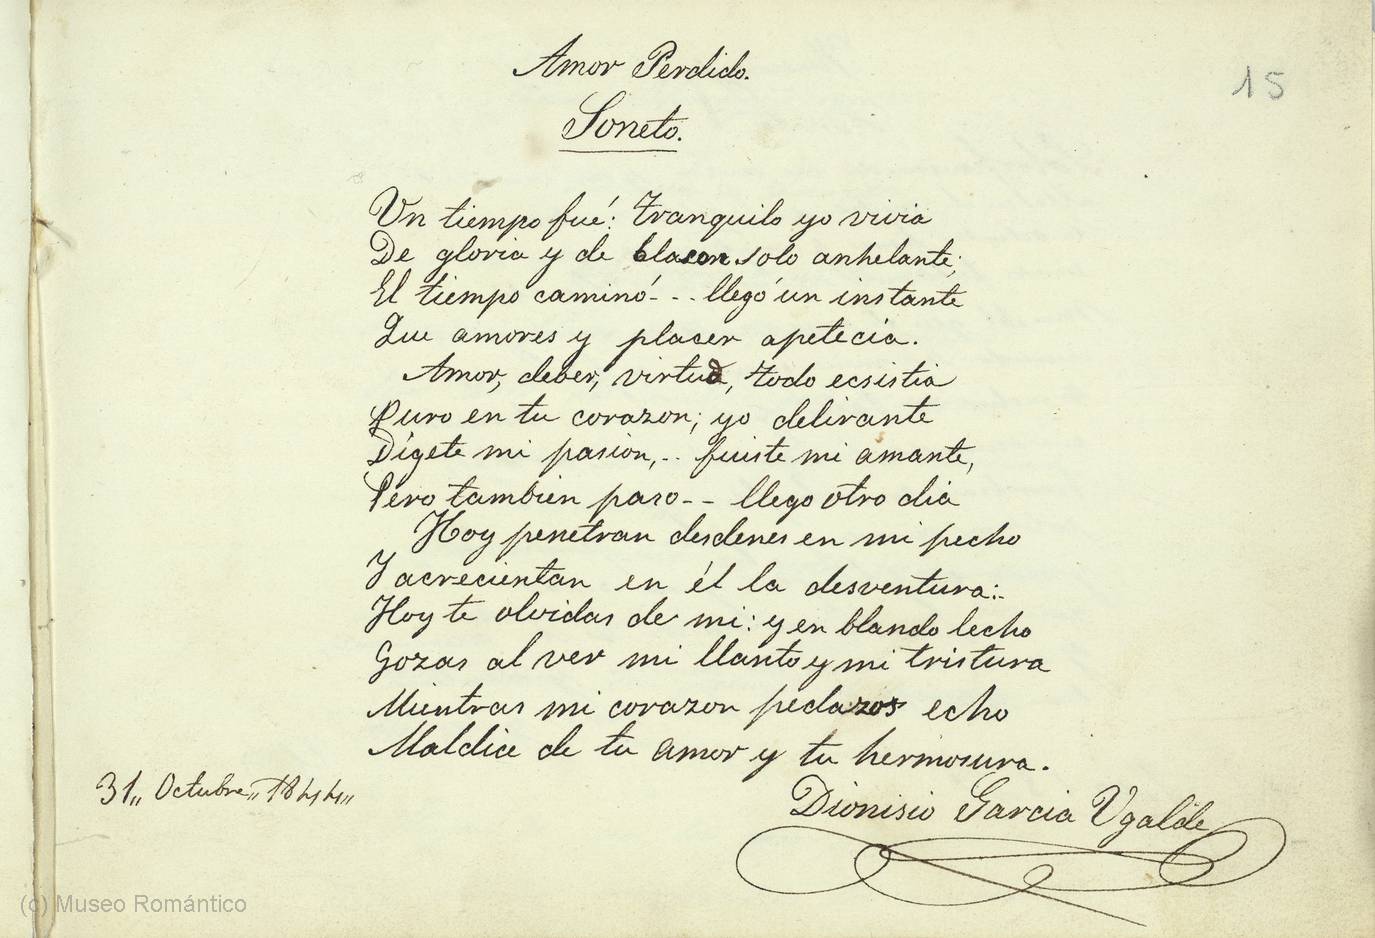 Amor Perdido.
15
Soneto.
Un tiempo fué: tranquilo yo vivia
De gloria y de blason solo anhelante;
El tiempo caminó - - - llegó un instante
Que amores y placer apetecia.
Amor, deber, virtud, todo ecsistia
Puro en tu corazon; yo delirante
Digete mi pasion, - - fuiste mi amante,
Pero tambien paso - - llego otro dia
Hoy penetran desdenes en mi pecho
Y acrecientan en él la desventura:
Hoy te olvidas de mi: y en blando lecho
Gozas al ver mi llanto y mi tristura
Mientras mi corazon pedazos echo
Maldice de tu amor y tu hermosura.
31,, Octubre,, 1844,,
Dionisio Garcia Ugalde
(c) Museo Romántico